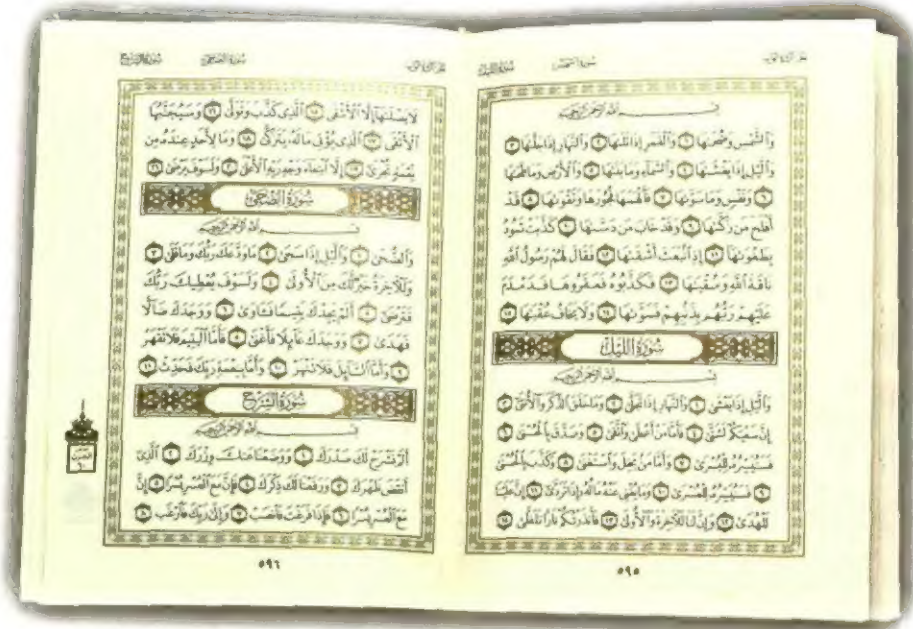 الجزء الثلاثون سورة الشمس سورة الليل
بسم الله الرحمن الرحيم
وَالشَّمْسِ وَضُحَىٰهَا ١ وَالْقَمَرِ إِذَا تَلَىٰهَا ٢ وَالنَّهَارِ إِذَا جَلَّىٰهَا ٣
وَالَّيْلِ إِذَا يَغْشَىٰهَا ٤ وَالسَّمَاءِ وَمَا بَنَىٰهَا ٥ وَالْأَرْضِ وَمَا طَحَىٰهَا
٦ وَنَفْسٍ وَمَا سَوَّىٰهَا ٧ فَأَلْهَمَهَا فُجُورَهَا وَتَقْوَىٰهَا ٨ قَدْ
أَفْلَحَ مَن زَكَّىٰهَا ٩ وَقَدْ خَابَ مَن دَسَّىٰهَا ١٠ كَذَّبَتْ ثَمُودُ
بِطَغْوَىٰهَا ١١ إِذِ انبَعَثَ أَشْقَىٰهَا ١٢ فَقَالَ لَهُمْ رَسُولُ اللَّهِ
نَاقَةَ اللَّهِ وَسُقْيَٰهَا ١٣ فَكَذَّبُوهُ فَعَقَرُوهَا فَدَمْدَمَ
عَلَيْهِمْ رَبُّهُم بِذَنۢبِهِمْ فَسَوَّىٰهَا ١٤ وَلَا يَخَافُ عُقْبَٰهَا ١٥
سُورَةُ اللَّيْلِ
بسم الله الرحمن الرحيم
وَالَّيْلِ إِذَا يَغْشَىٰ ١ وَالنَّهَارِ إِذَا تَجَلَّىٰ ٢ وَمَا خَلَقَ الذَّكَرَ وَالْأُنثَىٰ ٣
إِنَّ سَعْيَكُمْ لَشَتَّىٰ ٤ فَأَمَّا مَنْ أَعْطَىٰ وَاتَّقَىٰ ٥ وَصَدَّقَ بِالْحُسْنَىٰ ٦
فَسَنُيَسِّرُهُ لِلْيُسْرَىٰ ٧ وَأَمَّا مَنۢ بَخِلَ وَاسْتَغْنَىٰ ٨ وَكَذَّبَ بِالْحُسْنَىٰ
٩ فَسَنُيَسِّرُهُ لِلْعُسْرَىٰ ١٠ وَمَا يُغْنِي عَنْهُ مَالُهُ إِذَا تَرَدَّىٰ ١١ إِنَّ عَلَيْنَا
لَلْهُدَىٰ ١٢ وَإِنَّ لَنَا لَلْآخِرَةَ وَالْأُولَىٰ ١٣ فَأَنذَرْتُكُمْ نَارًا تَلَظَّىٰ ١٤
٥٩٥
الجزء الثلاثون سورة الضحى سورة الشرح
لَا يَصْلَىٰهَا إِلَّا الْأَشْقَى ١٥ الَّذِي كَذَّبَ وَتَوَلَّىٰ ١٦ وَسَيُجَنَّبُهَا
الْأَتْقَى ١٧ الَّذِي يُؤْتِي مَالَهُ يَتَزَكَّىٰ ١٨ وَمَا لِأَحَدٍ عِندَهُ مِن
نِّعْمَةٍ تُجْزَىٰ ١٩ إِلَّا ابْتِغَاءَ وَجْهِ رَبِّهِ الْأَعْلَىٰ ٢٠ وَلَسَوْفَ يَرْضَىٰ ٢١
سُورَةُ الضُّحَىٰ
بسم الله الرحمن الرحيم
وَالضُّحَىٰ ١ وَالَّيْلِ إِذَا سَجَىٰ ٢ مَا وَدَّعَكَ رَبُّكَ وَمَا قَلَىٰ ٣
وَلَلْآخِرَةُ خَيْرٌ لَّكَ مِنَ الْأُولَىٰ ٤ وَلَسَوْفَ يُعْطِيكَ رَبُّكَ
فَتَرْضَىٰ ٥ أَلَمْ يَجِدْكَ يَتِيمًا فَـَٔاوَىٰ ٦ وَوَجَدَكَ ضَالًّا
فَهَدَىٰ ٧ وَوَجَدَكَ عَائِلًا فَأَغْنَىٰ ٨ فَأَمَّا الْيَتِيمَ فَلَا تَقْهَرْ
٩ وَأَمَّا السَّائِلَ فَلَا تَنْهَرْ ١٠ وَأَمَّا بِنِعْمَةِ رَبِّكَ فَحَدِّثْ ١١
سُورَةُ الشَّرْحِ
بسم الله الرحمن الرحيم
أَلَمْ نَشْرَحْ لَكَ صَدْرَكَ ١ وَوَضَعْنَا عَنكَ وِزْرَكَ ٢ الَّذِي
أَنقَضَ ظَهْرَكَ ٣ وَرَفَعْنَا لَكَ ذِكْرَكَ ٤ فَإِنَّ مَعَ الْعُسْرِ يُسْرًا ٥ إِنَّ
مَعَ الْعُسْرِ يُسْرًا ٦ فَإِذَا فَرَغْتَ فَانصَبْ ٧ وَإِلَىٰ رَبِّكَ فَارْغَب ٨
٥٩٦